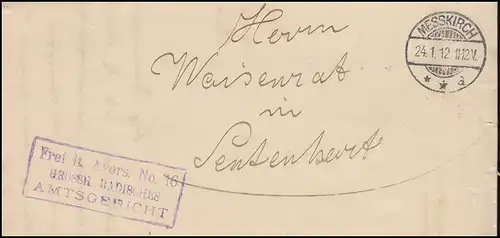 Herrn
Waisenrat
in
Sentenhart
MESSKIRCH
24.1.12.11-12V.
* * a
Frei lt. Avers. No. 16
GROSSH. BADISCHES
AMTSGERICHT